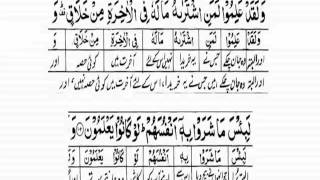 وَلَقَدْ عَلِمُوا لَمَنِ اشْتَرٰىهُ مَالَهٗ فِی الْاٰخِرَةِ مِنْ خَلَاقٍ ۗ وَ
وَلَقَدْ عَلِمُوا لَمَنِ اشْتَرٰىهُ مَالَهٗ فِی الْاٰخِرَةِ مِنْ خَلَاقٍ وَ
اور البتہ وہ جان چکے جس نے یہ خریدا نہیں اس کے لئے آخرت میں کوئی حصہ اور
اور البتہ وہ جان چکے ہیں جس نے یہ خریدا، اس کے لئے آخرت میں کوئی حصہ نہیں، اور
لَبِئْسَ مَا شَرَوْا بِهٖٓ اَنْفُسَهُمْ ؕ لَوْ كَانُوْا یَعْلَمُوْنَ
لَبِئْسَ مَا شَرَوْا بِهٖ اَنْفُسَهُمْ لَوْ كَانُوْا یَعْلَمُوْنَ